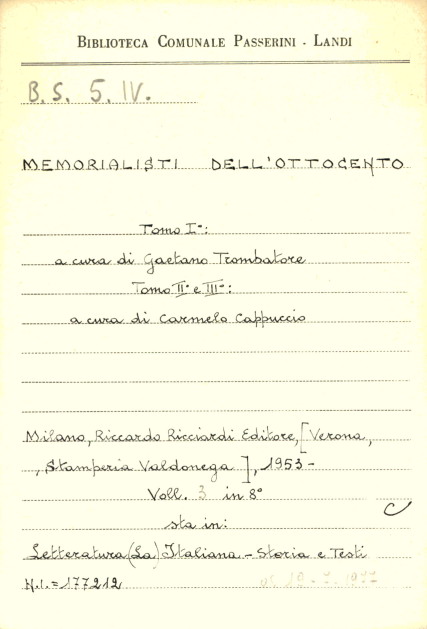 BIBLIOTECA COMUNALE PASSERINI - LANDI
B. S. 5. IV.
MEMORIALISTI DELL'OTTOCENTO
Tomo I°:
a cura di Gaetano Trombatore
Tomo II° e III°:
a cura di Carmelo Cappuccio
Milano, Riccardo Ricciardi Editore, [Verona,
, Stamperia Valdonega], 1953-
Voll. 3 in 8°
C
sta in:
Letteratura (La) Italiana - Storia e Testi
N.I. = 177212